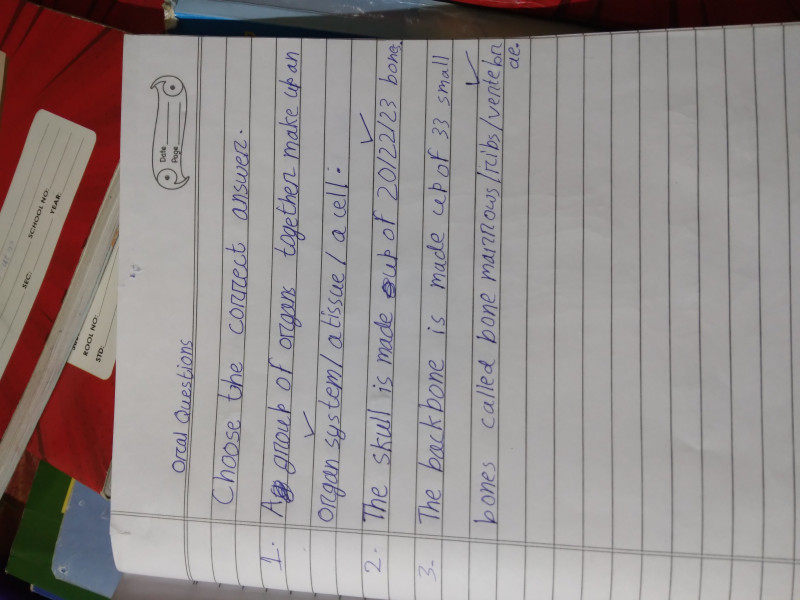 Date
Page
Oral Questions
Choose the correct answer.
1. A group of organs together make up an
organ system / a tissue / a cell.
2. The skull is made up of 20/22/23 bones.
3. The backbone is made up of 33 small
bones called bone marrows/ribs/vertebr
ae.
SCHOOL NO:
SEC:
YEAR:
ROOL NO:
STD: